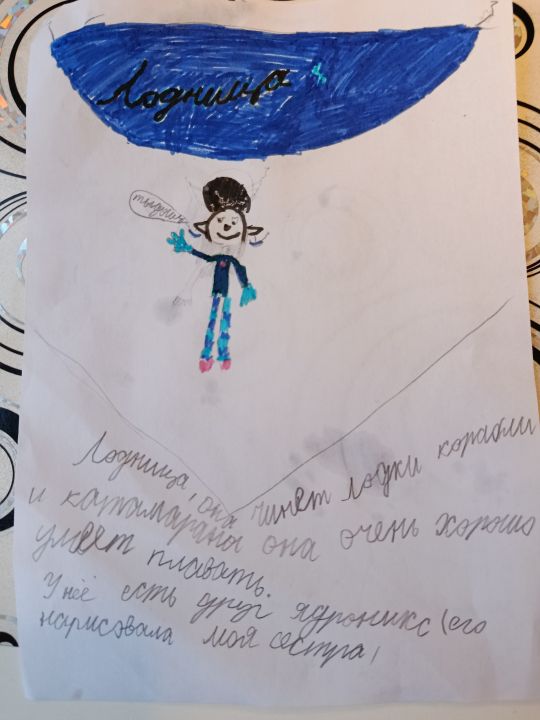 Лодница
Лодница, она чинет лодки корабли
и катамараны она очень хорошо
умеет плавать.
У неё есть друг ядроникс (его
нарисовала моя сестра)